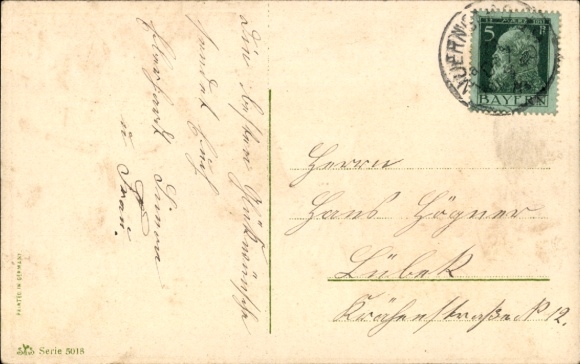 Die besten Glückwünsche
sendet Euch
Eberhard Simon
u Frau.
Herrn
Hans Högner
Lübek
Krähenstraße N 12.
5
BAYERN
NUERN
PRINTED IN GERMANY
Serie 5018